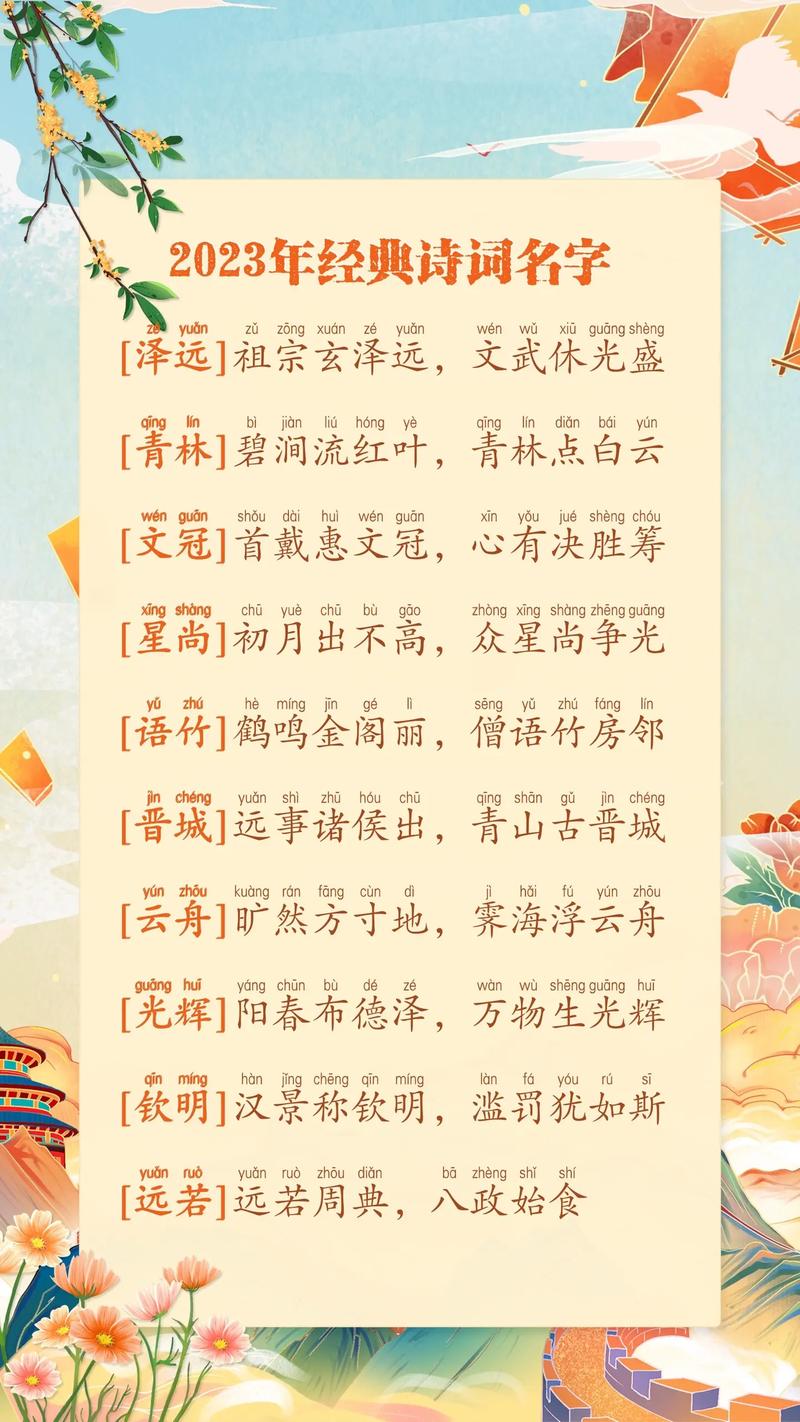 2023年经典诗词名字
zé yuǎn zǔ zōng xuán zé yuǎn wén wǔ xiū guāng shèng
[泽远]祖宗玄泽远，文武休光盛
qīng lín bì jiàn liú hóng yè qīng lín diǎn bái yún
[青林]碧涧流红叶，青林点白云
wén guān shǒu dài huì wén guān xīn yǒu jué shèng chóu
[文冠]首戴惠文冠，心有决胜筹
xīng shàng chū yuè chū bù gāo zhòng xīng shàng zhēng guāng
[星尚]初月出不高，众星尚争光
yǔ zhú hè míng jīn gé lì sēng yǔ zhú fáng lín
[语竹]鹤鸣金阁丽，僧语竹房邻
jìn chéng yuǎn shì zhū hóu chū qīng shān gǔ jìn chéng
[晋城]远事诸侯出，青山古晋城
yún zhōu kuàng rán fāng cùn dì jì hǎi fú yún zhōu
[云舟]旷然方寸地，霁海浮云舟
guāng huī yáng chūn bù dé zé wàn wù shēng guāng huī
[光辉]阳春布德泽，万物生光辉
qīn míng hàn jǐng chēng qīn míng làn fá yóu rú sī
[钦明]汉景称钦明，滥罚犹如斯
yuǎn ruò yuǎn ruò zhōu diǎn bā zhèng shǐ shí
[远若]远若周典，八政始食